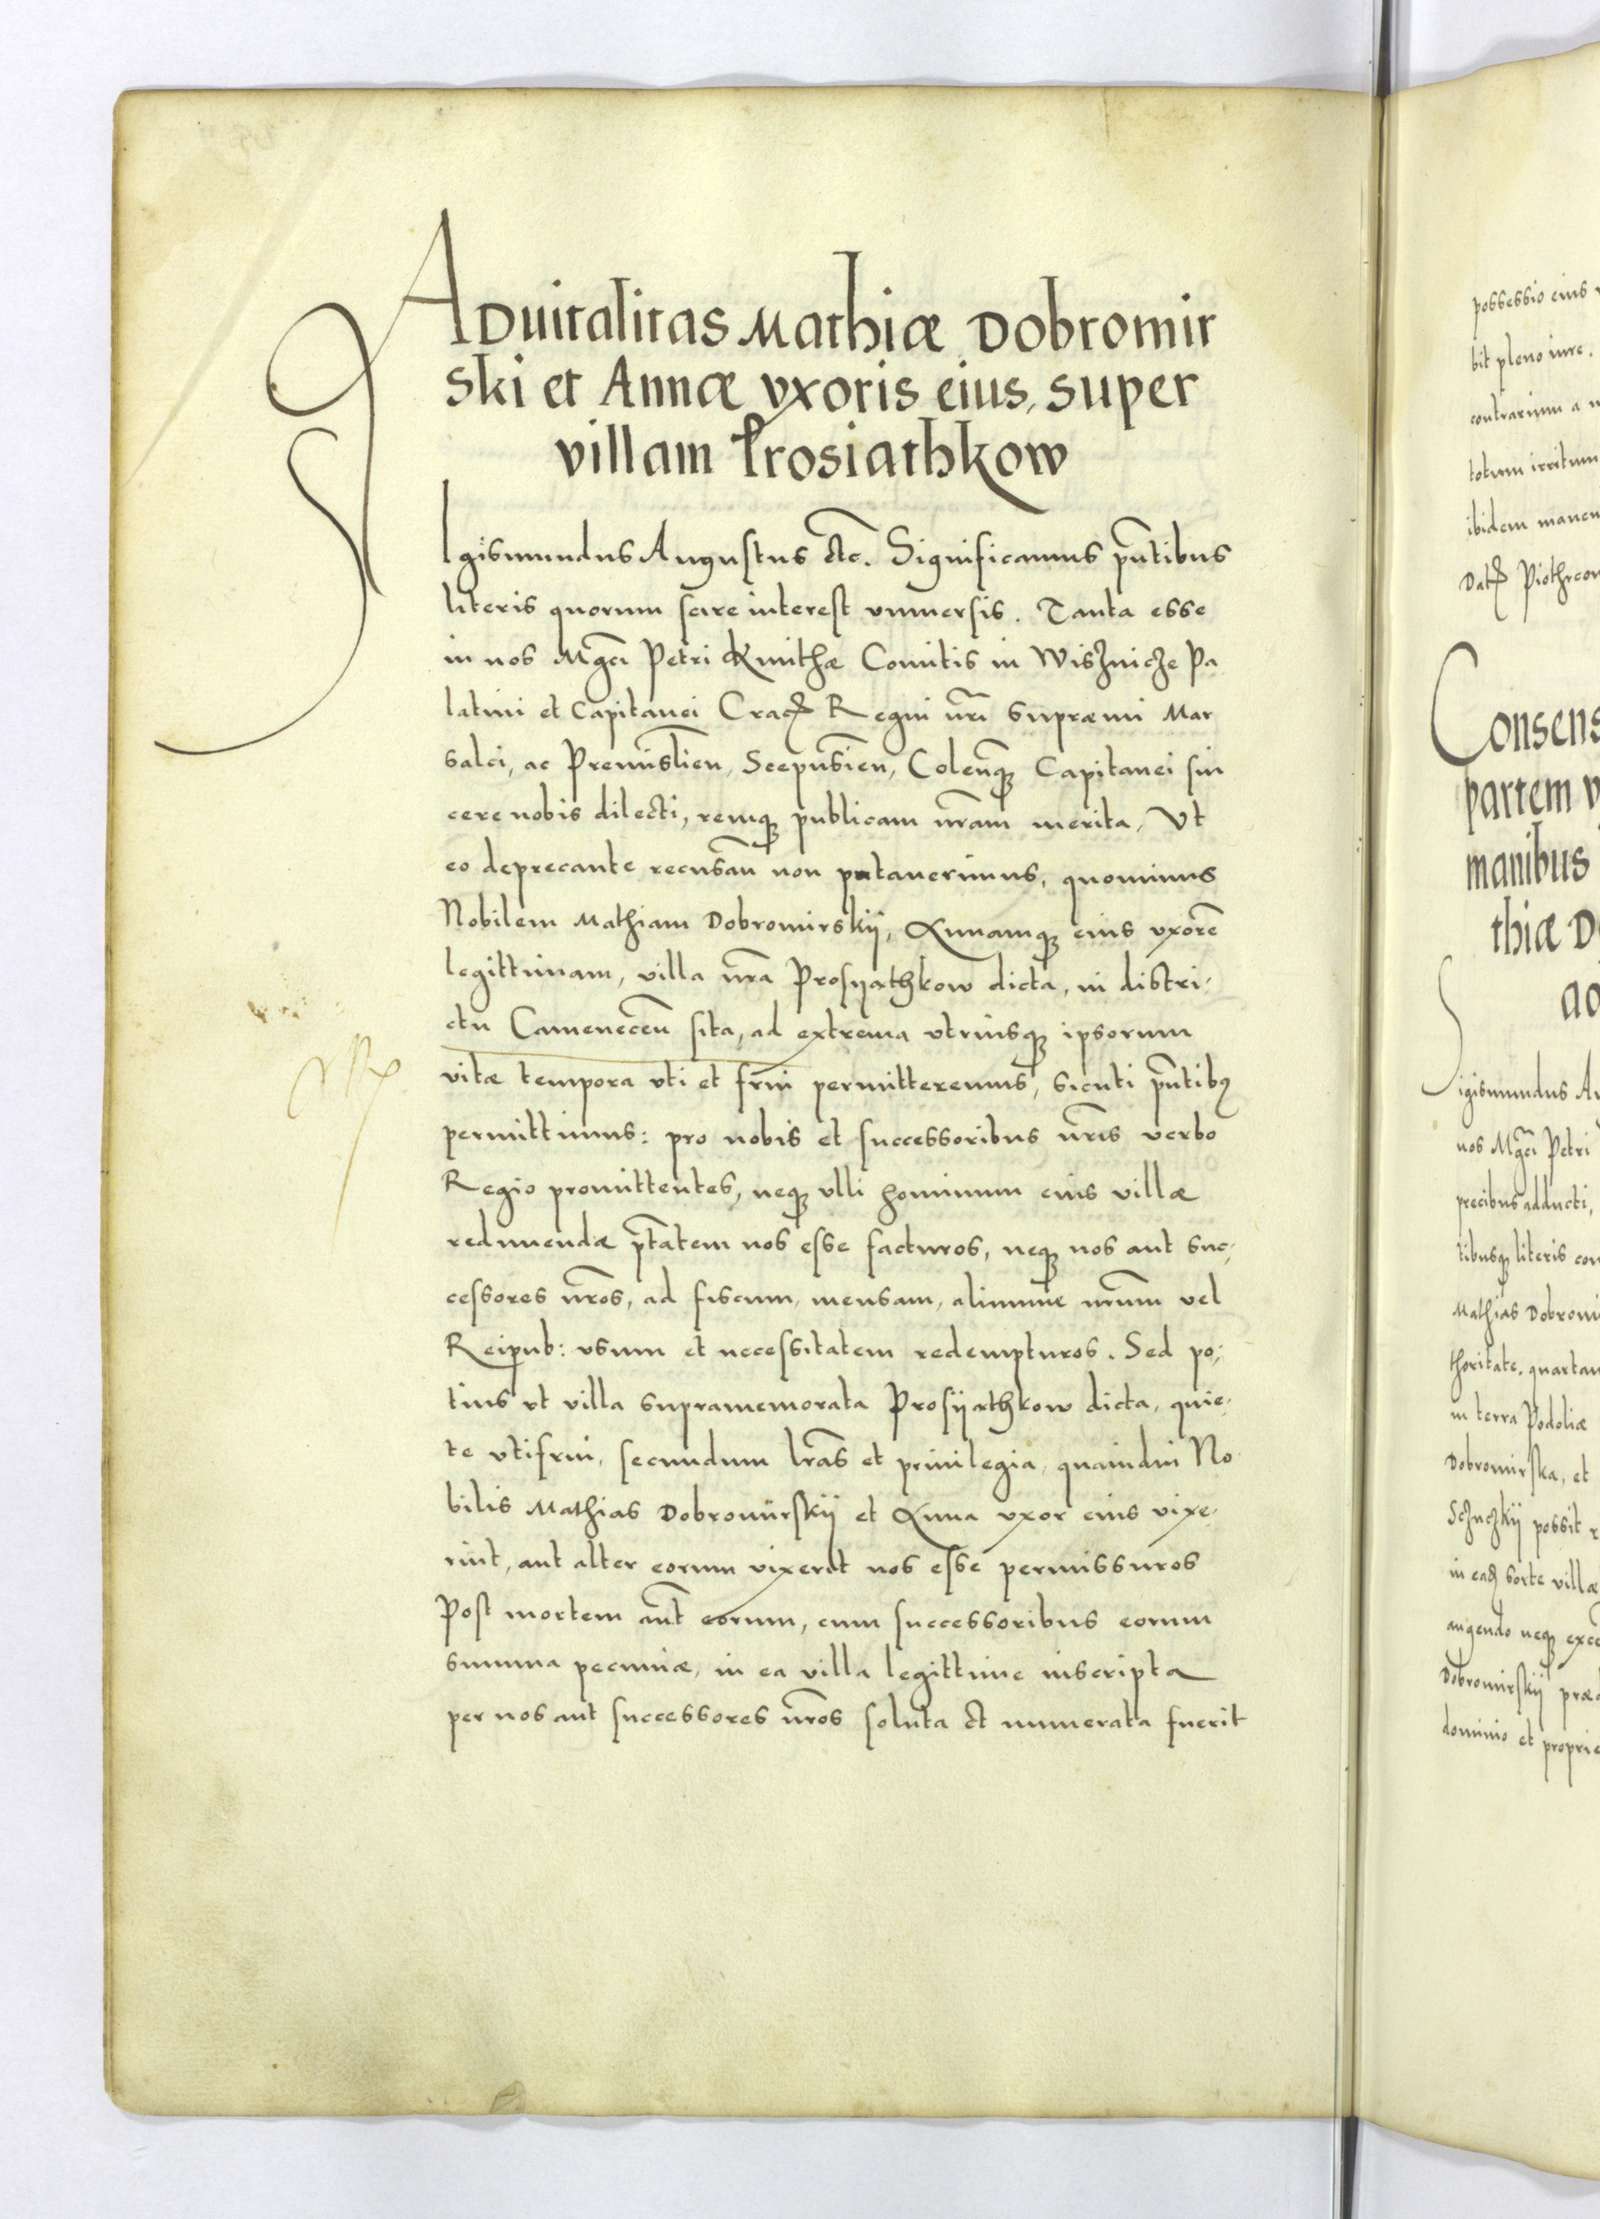 ADvitalitas Mathiæ Dobromir
ski et Annæ vxoris eius, super
villam Prosiathkow
Sigismundus Augustus etc. Significamus pñtibus
literis quorum scire interest vniuersis. Tanta esse
in nos Mgci Petri Kmithæ Comitis in Wisznicze Pa
latini et Capitanei Crac Regni nri supræmi Mar
salci, ac Premislien, Scepusien, Colensq Capitanei sin
cere nobis dilecti, remq publicam nram merita, Vt
eo deprecante recusan non putauerimus, quominus
Nobilem Mathiam Dobromirskij, Annamq eius vxorē
legittimam, villa nra Prosijathkow dicta, in distri-
ctu Camenecen sita, ad extrema vtriusq ipsorum
vitæ tempora vti et frui permitteremus, sicuti pñtibq
permittimus: pro nobis et successoribus nris verbo
Regio promittentes, neq vlli hominum eius villæ
redimendæ ptatem nos esse facturos, neq nos aut suc-
cessores nros, ad fiscum, mensam, aliumue nrum vel
Reipub: vsum et necessitatem redempturos. Sed po-
tius vt villa supramemorata Prosijathkow dicta, quie-
te vtifrui, secundum lras et priuilegia, quamdiu No
bilis Mathias Dobromirskij et Anna vxor eius vixe-
rint, aut alter eorum vixerit nos esse permissuros
Post mortem aut eorum, cum successoribus eorum
summa pecuniæ, in ea villa legittime inscripta
per nos aut successores nros soluta et numerata fuerit
possessio eius
bit pleno iure.
contrarium a
totum irritum
ibidem manen
Dat Piothrcou
Consens
partem v
manibus
thiæ Do
ac
Sigismundus Au
nos Mgci Petri
precibus adducti,
tibusq literis con
Mathias Dobromi
thoritate. quartam
in terra Podoliæ
Dobromirska, et
possit r
in ead sorte villæ
augendo neq exce
Dobromirskij præd
dominio et proprie